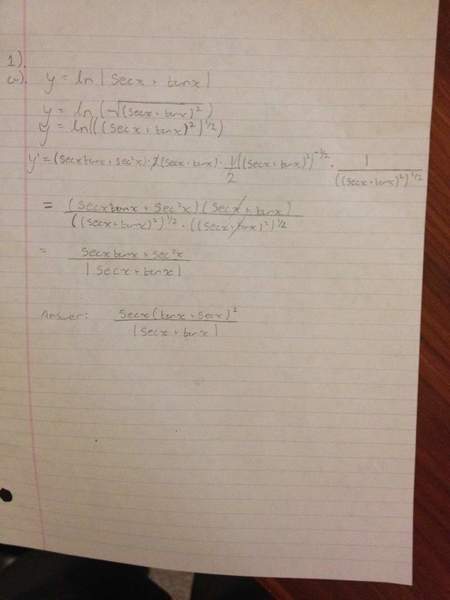 1).
(iv). y = ln|secx + tanx|
y = ln(√(secx + tanx)²)
y = ln(((secx + tanx)²)^1/2)
y' = (secxtanx + sec²x)·2(secx + tanx)·1/2((secx + tanx)²)^-1/2 · 1/((secx + tanx)²)^1/2
= (secxtanx + sec²x)(secx + tanx)/((secx + tanx)²)^1/2 · ((secx + tanx)²)^1/2
= secxtanx + sec²x/|secx + tanx|
Answer: secx(tanx + secx)²/|secx + tanx|